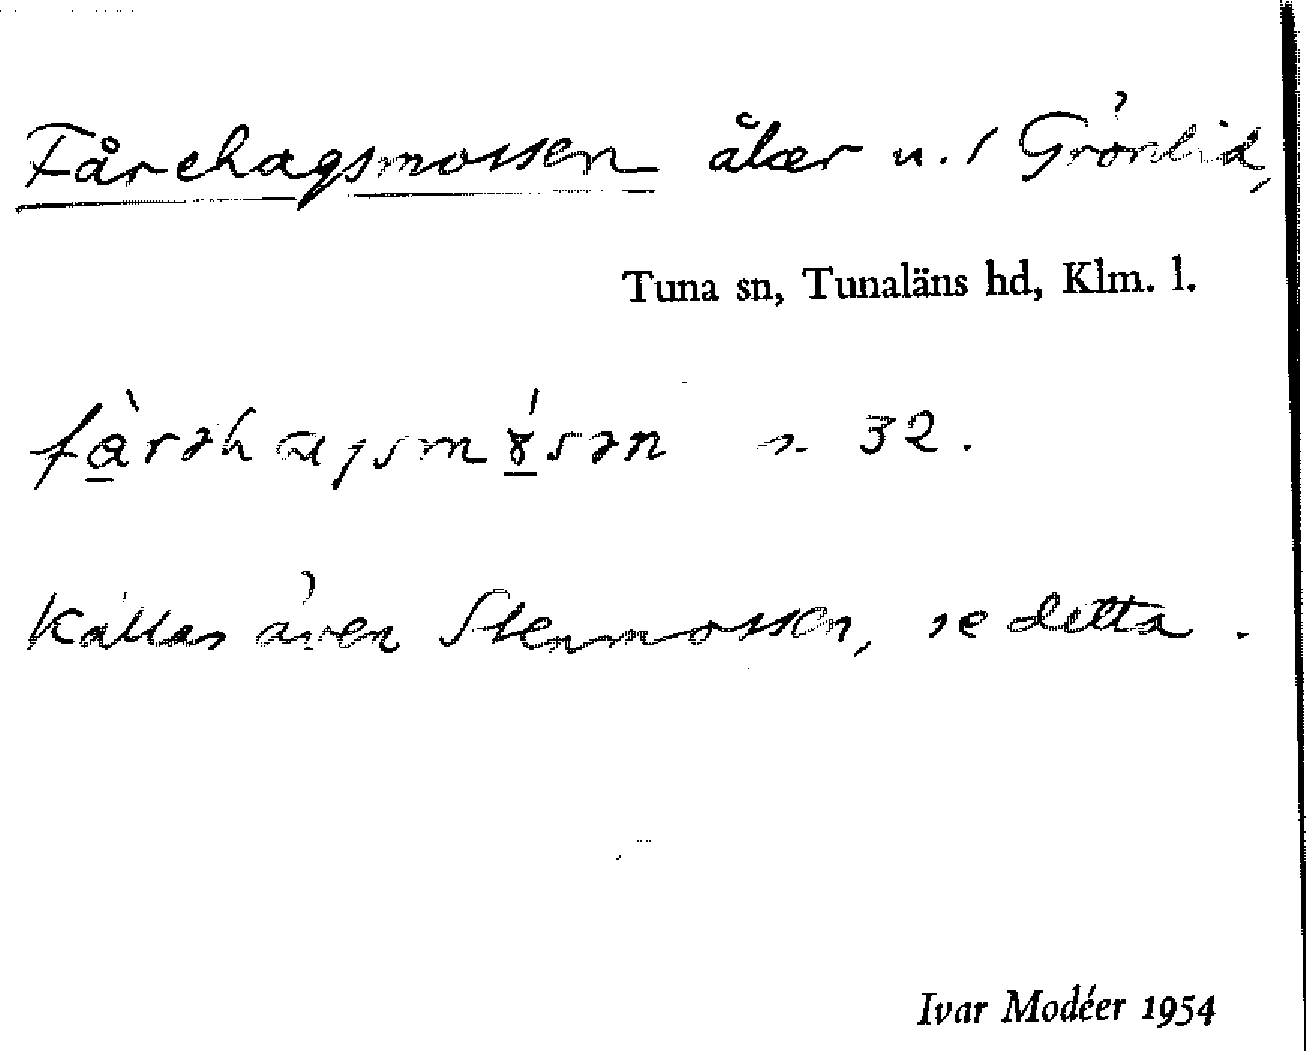 Fårehagsmossen åker n. 1 Grönlid,
Tuna sn, Tunaläns hd, Klm. l.
fàrəhagsmɤ́sən s. 32.
Kallas även Stenmossen, se detta.
Ivar Modéer 1954